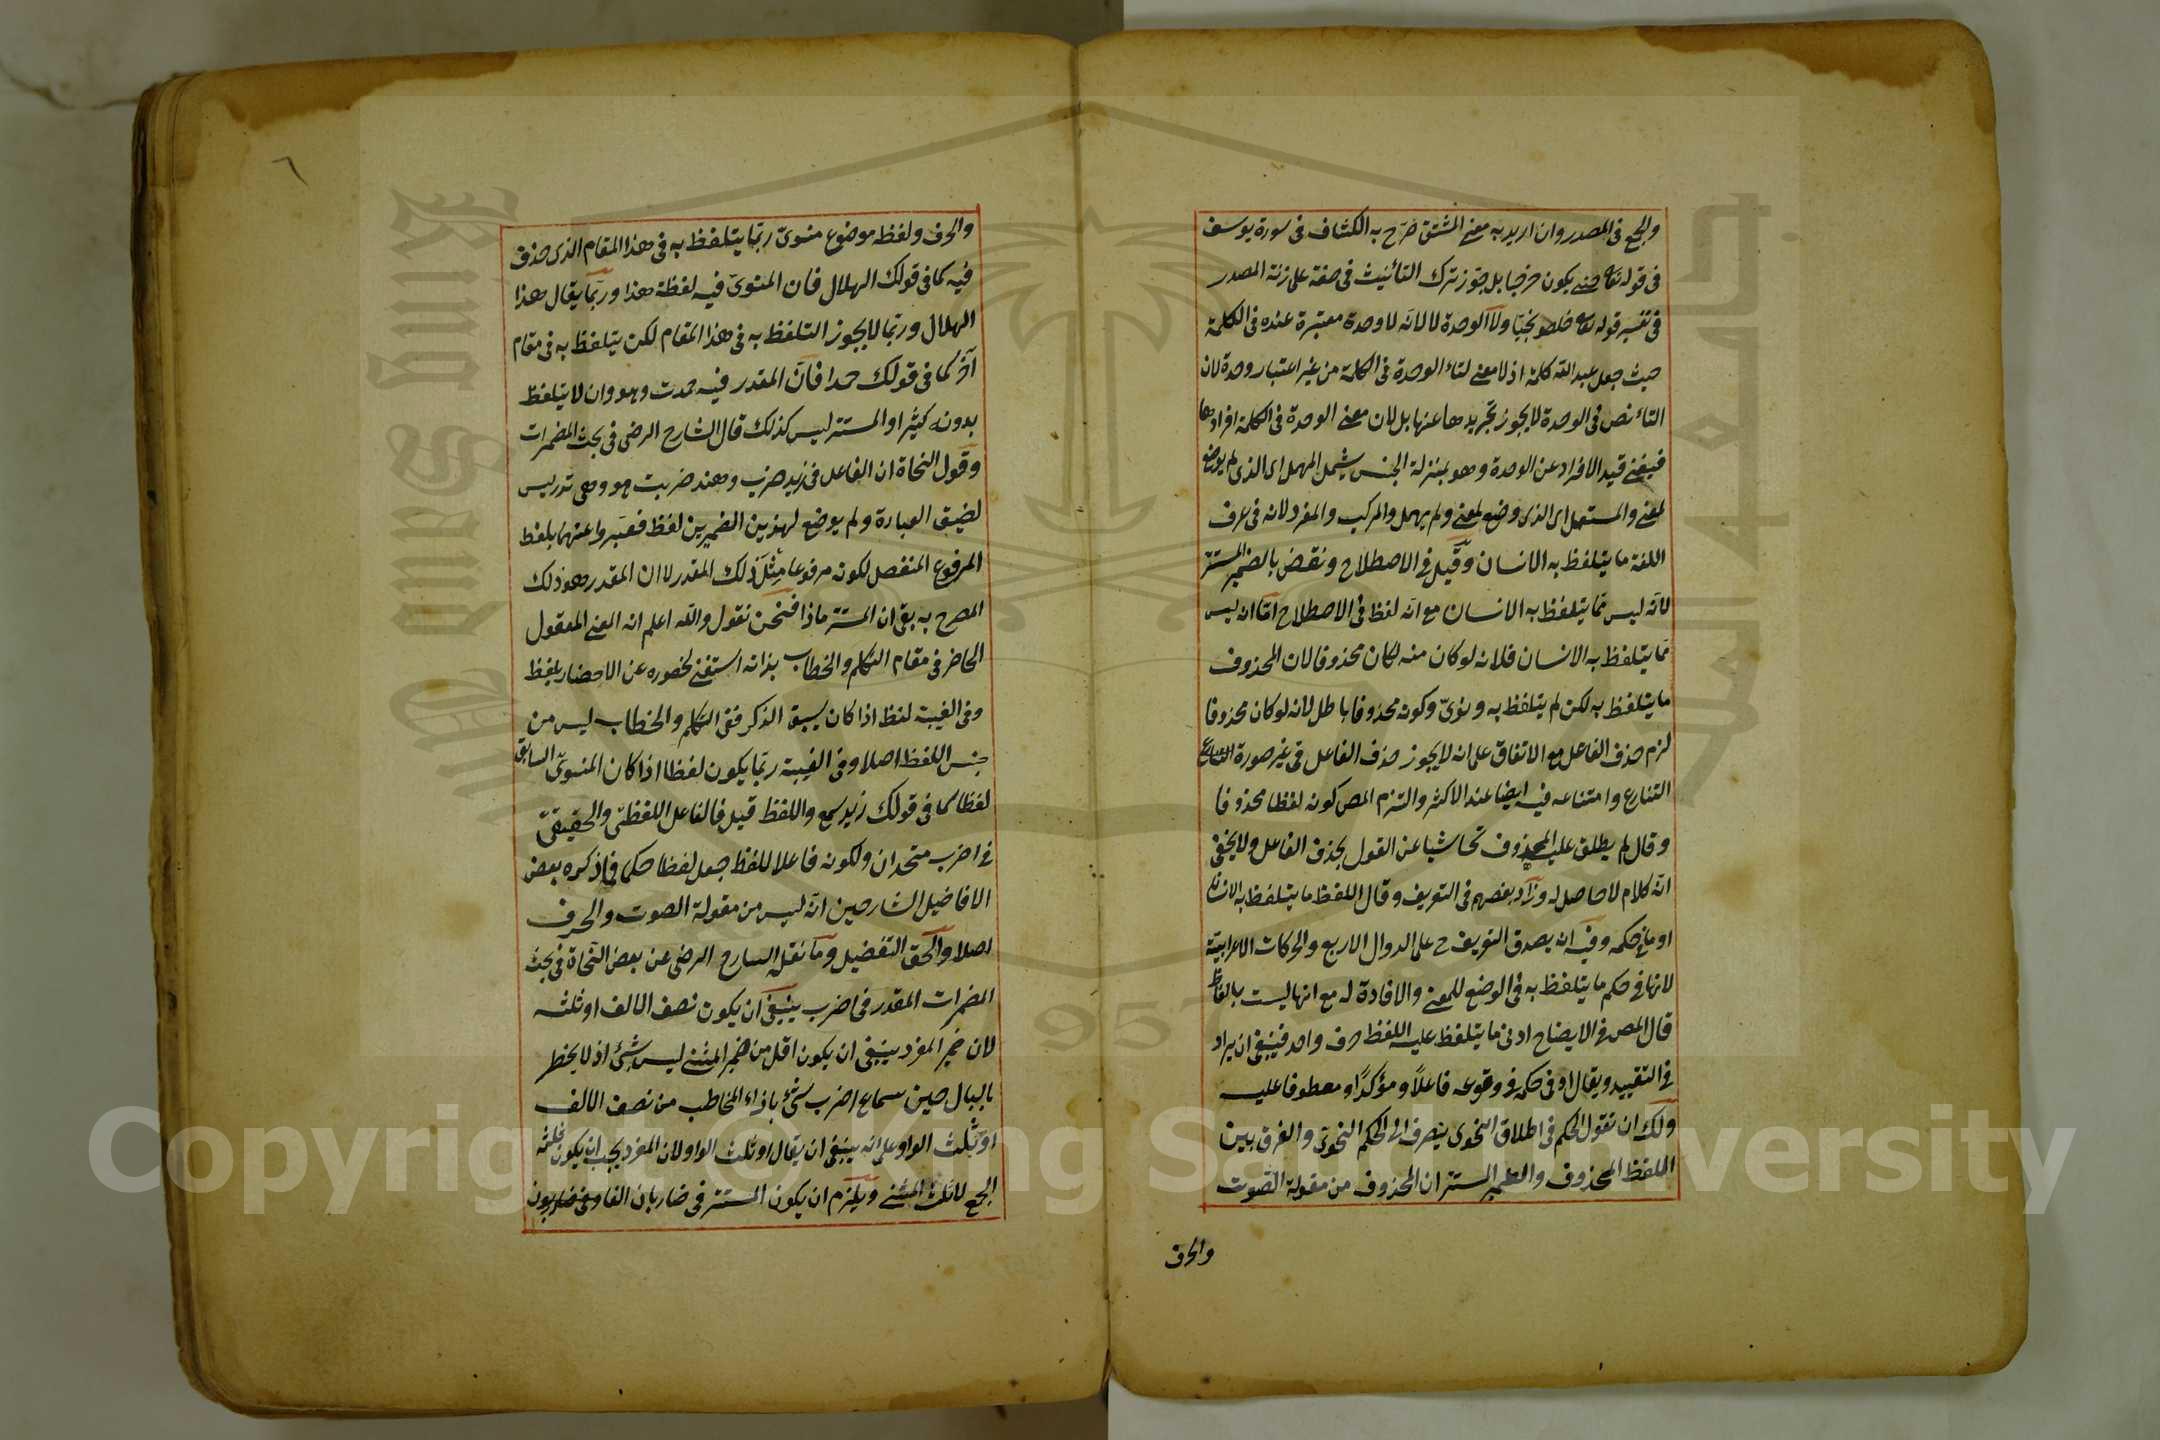 والجمع في المصدر وان اريد به معنى المشتق صرح به الكشاف في سورة يوسف
في قوله تع حتى يكون حرضا بل جوز ترك التأنيث في صفة على زنة المصدر
في تفسير قوله تع خلصوا نجيا ولا الوحدة لا لانه لا وحدة معتبرة عنده في الكلمة
حيث جعل عبد الله كلمة اذ لا معنى لتاء الوحدة في الكلمة من غير اعتبار وحدة لان
التاء نص في الوحدة لا يجوز تجريدها عنها بل لان معنى الوحدة في الكلمة افرادها
فيغني قيد الافراد عن الوحدة وهو بمنزلة الجنس يشمل المهمل اى الذى لم يوضع
لمعنى والمستعمل اى الذى وضع لمعنى ولم يهمل والمركب والمفرد لانه في عرف
اللغة ما يتلفظ به الانسان وقيل في الاصطلاح ونقض بالضمير المستتر
لانه ليس مما يتلفظ به الانسان مع انه لفظ في الاصطلاح اما انه ليس
مما يتلفظ به الانسان فلانه لو كان منه لكان محذوفا لان المحذوف
ما يتلفظ به لكن لم يتلفظ به ونوى وكونه محذوفا باطل لانه لو كان محذوفا
لزم حذف الفاعل مع الاتفاق على انه لا يجوز حذف الفاعل في غير صورة
التنازع وامتناعه فيه ايضا عند الاكثر والتزم المص كونه لفظا محذوفا
وقال لم يطلق عليه المحذوف تحاشيا عن القول بحذف الفاعل ولا يخفى
انه كلام لا حاصل له وزاد بعضهم في التعريف وقال اللفظ ما يتلفظ به الانسان
او ما في حكمه وفيه انه يصدق التعريف ح على الدوال الاربع والحركات الاعرابية
لانها في حكم ما يتلفظ به في الوضع للمعنى والافادة له مع انها ليست بالفاظ
قال المص في الايضاح ادنى ما يتلفظ عليه اللفظ حرف واحد فينبغي ان يراد
في التقييد ويقال او في حكمه في وقوعه فاعلا ومؤكدا او معطوفا عليه
ولك ان تقول الحكم في اطلاق النحوى ينصرف الى الحكم النحوى والفرق بين
اللفظ المحذوف والضمير المستتر ان المحذوف من مقولة الصوت
والحرف
والحرف ولفظ موضوع منوى ربما يتلفظ به في هذا المقام الذى حذف
فيه كما في قولك الهلال فان المنوى فيه لفظة هذا وربما يقال هذا
الهلال وربما لا يجوز التلفظ به في هذا المقام لكن يتلفظ به في مقام
آخر كما في قولك حمدا فان المقدر فيه حمدت وهو وان لا يتلفظ
بدونه كثيرا والمستتر ليس كذلك قال الشارح الرضى في بحث المضمرات
وقول النحاة ان الفاعل في زيد ضرب وهند ضربت هو وهى تدريس
لضيق العبارة ولم يوضع لهذين الضميرين لفظ فعبروا عنهما بلفظ
المرفوع المنفصل لكونه مرفوعا مثل ذلك المقدر لا ان المقدر هو ذلك
المصرح به بقى ان المستتر ماذا فنحن نقول والله اعلم انه المعنى المعقول
الحاضر في مقام التكلم والخطاب بذاته استغنى لحضوره عن الاحضار بلفظ
وفي الغيبة لفظ اذا كان يسبق الذكر ففي التكلم والخطاب ليس من
جنس اللفظ اصلا وفي الغيبة ربما يكون لفظا اذا كان المنوى السابق
لفظا كما في قولك زيد سمع واللفظ قيل فالفاعل اللفظى والحقيقى
في اضرب متحدان ولكونه فاعلا للفظ جعل لفظا حكما فما ذكره بعض
الافاضل الشارحين انه ليس من مقولة الصوت والحرف
اصلا والحق التفصيل وما نقله الشارح الرضى عن بعض النحاة في بحث
المضمرات المقدر في اضرب ينبغي ان يكون نصف الالف او ثلثه
لان ضمير المفرد ينبغي ان يكون اقل من ضمير المثنى ليس بشئ اذ لا يخطر
بالبال حين سماع اضرب شئ بازاء المخاطب من نصف الالف
او ثلث الواو على انه ينبغي ان يقال او ثلث الواو لان المفرد يجب ان يكون ثلث
الجمع لا ثلث المثنى ويلزم ان يكون المستتر في ضاربان الفا وفي ضاربون
Copyright © King Saud University
1957